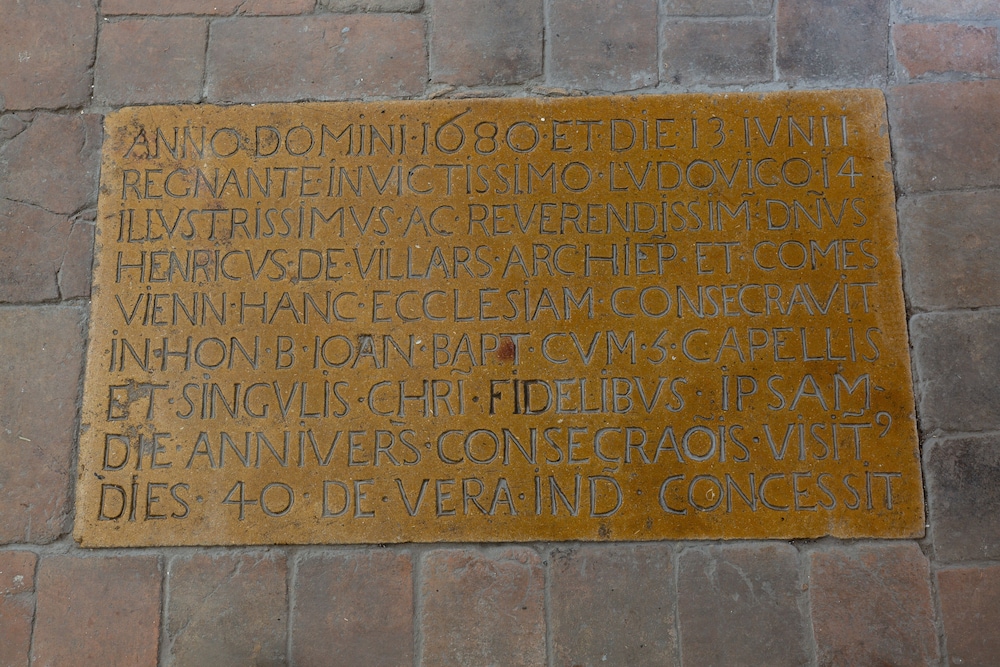 ANNO·DOMINI·1680·ET DIE·13·IVNII
REGNANTE INVICTISSIMO·LVDOVICO·14
ILLVSTRISSIMVS·AC·REVERENDISSIM̃·DÑVS
HENRICVS·DE·VILLARS·ARCHIEP·ET·COMES
VIENN·HANC·ECCLESIAM·CONSECRAVIT
IN·HON·B·IOAN·BAPT·CVM·5·CAPELLIS
ET·SINGVLIS·CHRĨ·FIDELIBVS·IPSAM-
DIE·ANNIVERS̃·CONSECRAÕIS·VISIT̃’
DIES·40·DE·VERA·IND̃·CONCESSIT